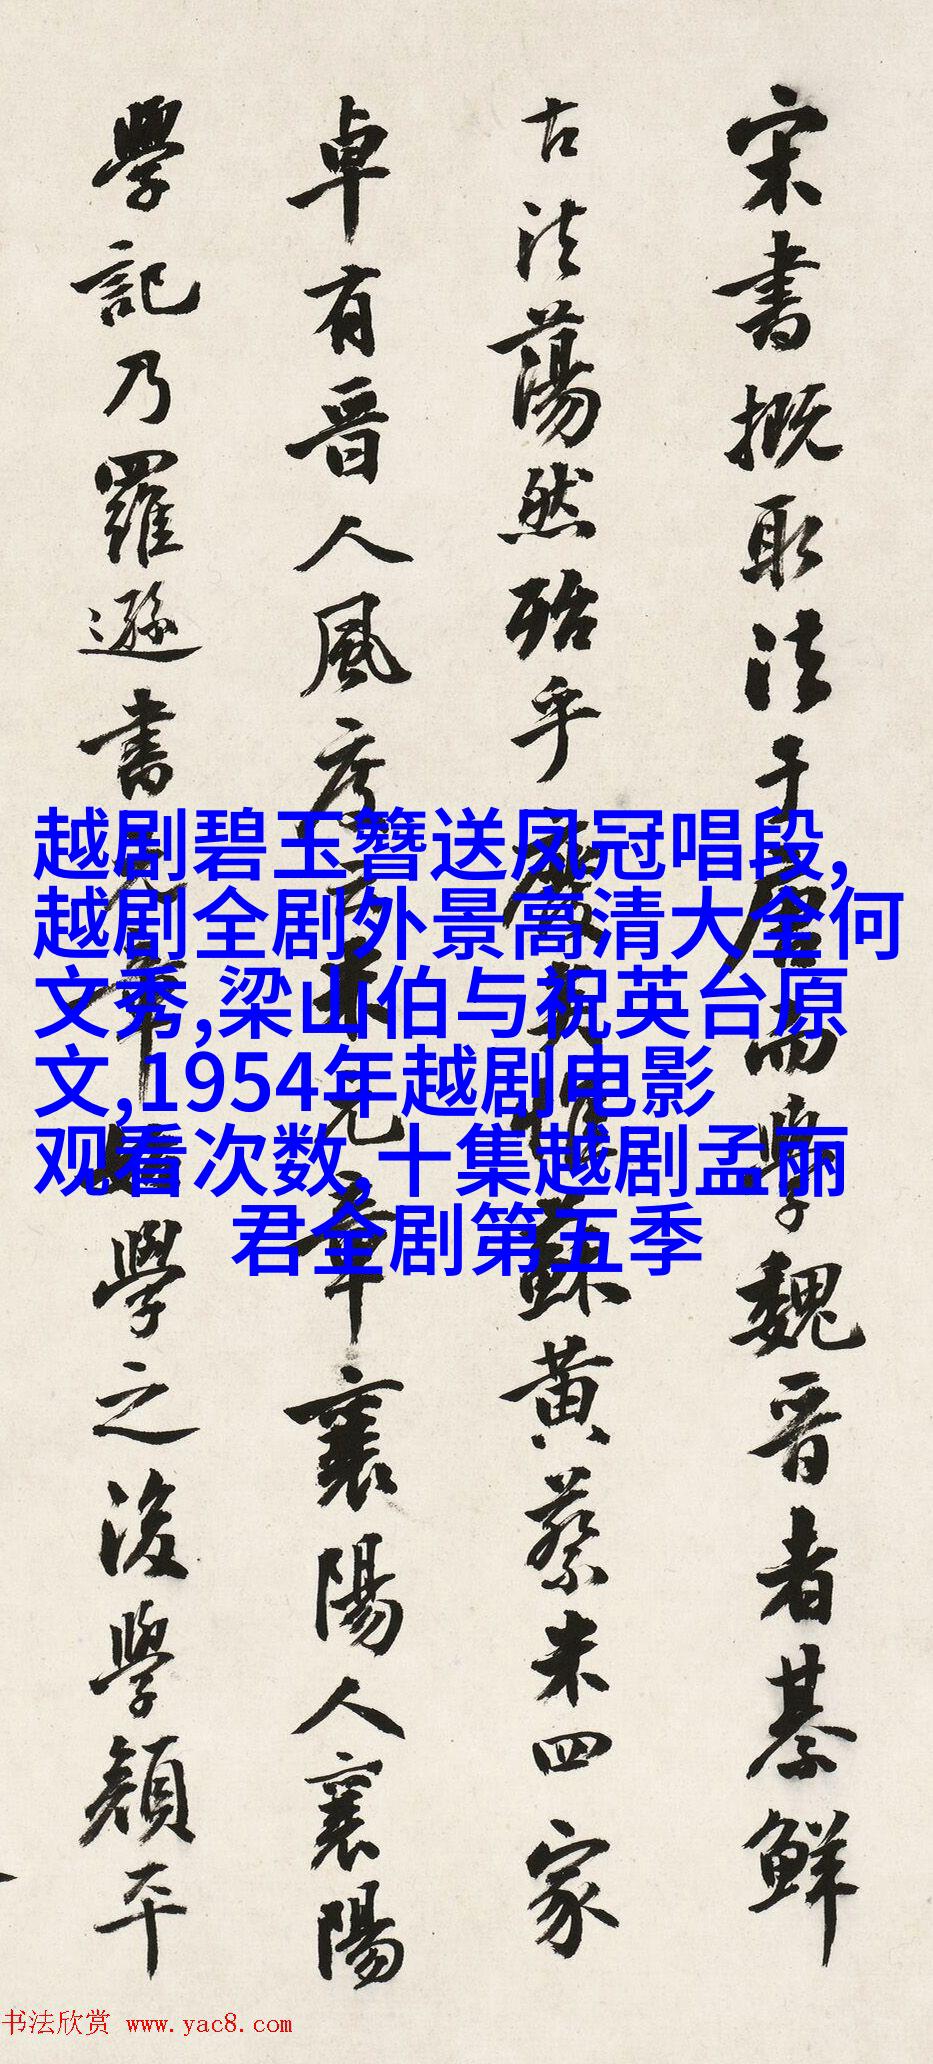 宋書概取法于唐而學魏晉者綦鮮
古法蕩然殆乎廢矣惟蘇黃蔡米四家
卓有晉人風度言米元章襄陽人襄陽
學記乃羅遜書元章始學之後學顏平
越剧碧玉簪送凤冠唱段,
越剧全剧外景高清大全何
文秀,梁山伯与祝英台原
文,1954年越剧电影
观看次数,十集越剧孟丽
君全剧第五季
书法欣赏 www.yac8.com